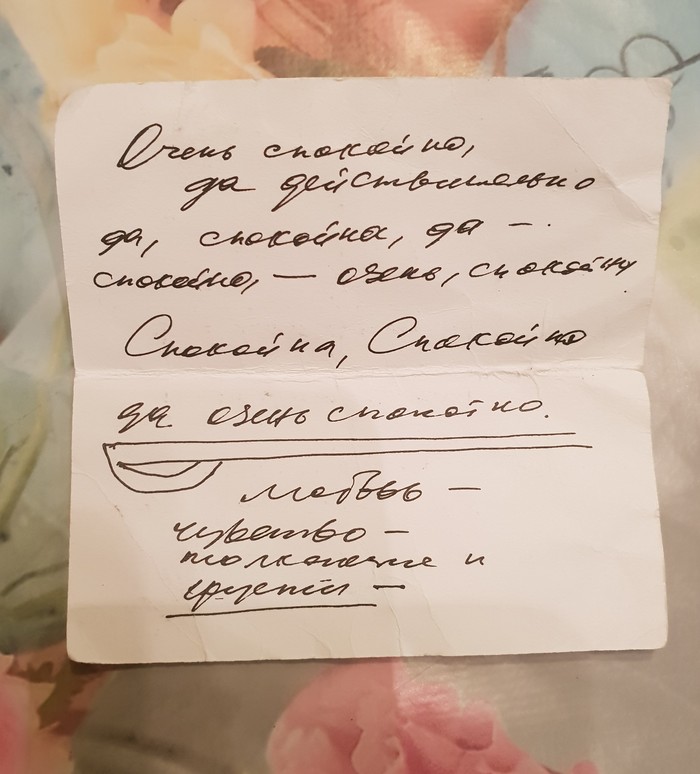 Очень спокойно,
да действительно
да, спокойна, да —.
спокойно, — очень, спокойны
Спокойна, Спокойно
да очень спокойно.
любовь —
чувство —
и
грусти —